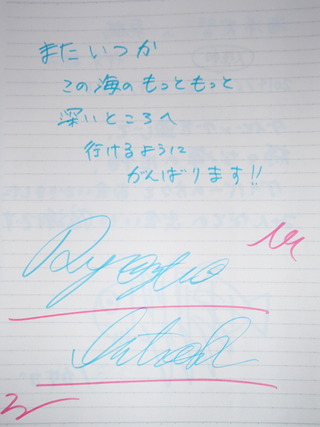 また いつか
この海の もっともっと
深いところへ
行けるように
がんばります!!